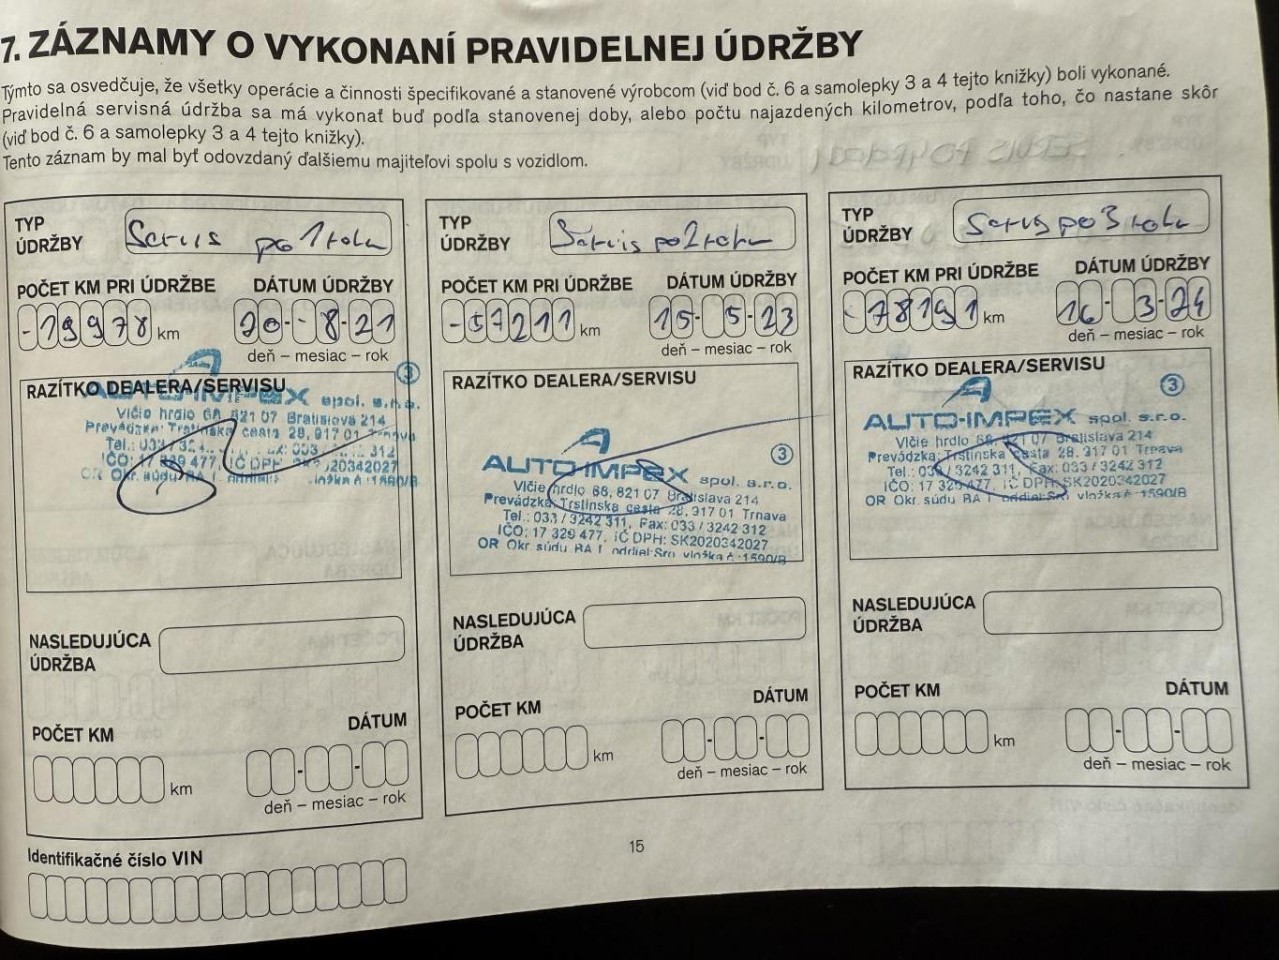 7. ZÁZNAMY O VYKONANÍ PRAVIDELNEJ ÚDRŽBY
Týmto sa osvedčuje, že všetky operácie a činnosti špecifikované a stanovené výrobcom (viď bod č. 6 a samolepky 3 a 4 tejto knižky) boli vykonané.
Pravidelná servisná údržba sa má vykonať buď podľa stanovenej doby, alebo počtu najazdených kilometrov, podľa toho, čo nastane skôr
(viď bod č. 6 a samolepky 3 a 4 tejto knižky).
Tento záznam by mal byť odovzdaný ďalšiemu majiteľovi spolu s vozidlom.
TYP
ÚDRŽBY
Servis po 1 roku
POČET KM PRI ÚDRŽBE DÁTUM ÚDRŽBY
-19978 km 20-8-21
deň – mesiac – rok
RAZÍTKO DEALERA/SERVISU
3
AUTO-IMPEX spol. s.r.o.
Vlčie hrdlo 68, 821 07 Bratislava 214
Prevádzka: Trstínska cesta 28, 917 01 Trnava
NASLEDUJÚCA
ÚDRŽBA
POČET KM DÁTUM
km
deň – mesiac – rok
TYP
ÚDRŽBY
Servis po 2 roku
POČET KM PRI ÚDRŽBE DÁTUM ÚDRŽBY
-57211 km 15-5-23
deň – mesiac – rok
RAZÍTKO DEALERA/SERVISU
3
AUTO-IMPEX spol. s.r.o.
Vlčie hrdlo 68, 821 07 Bratislava 214
Prevádzka: Trstínska cesta 28, 917 01 Trnava
Tel.: 033 / 3242 311, Fax: 033 / 3242 312
IČO: 17 329 477, IČ DPH: SK2020342027
OR Okr. súdu BA I oddiel:Sro vložka č.:1590/B
NASLEDUJÚCA
ÚDRŽBA
POČET KM DÁTUM
km
deň – mesiac – rok
TYP
ÚDRŽBY
Servis po 3 roku
POČET KM PRI ÚDRŽBE DÁTUM ÚDRŽBY
-78191 km 16-3-24
deň – mesiac – rok
RAZÍTKO DEALERA/SERVISU
3
AUTO-IMPEX spol. s.r.o.
Vlčie hrdlo 68, 821 07 Bratislava 214
Prevádzka: Trstínska cesta 28, 917 01 Trnava
Tel.: 033 / 3242 311, Fax: 033 / 3242 312
IČO: 17 329 477, IČ DPH: SK2020342027
OR Okr. súdu BA I oddiel:Sro vložka č.:1590/B
NASLEDUJÚCA
ÚDRŽBA
POČET KM DÁTUM
km
deň – mesiac – rok
Identifikačné číslo VIN
15